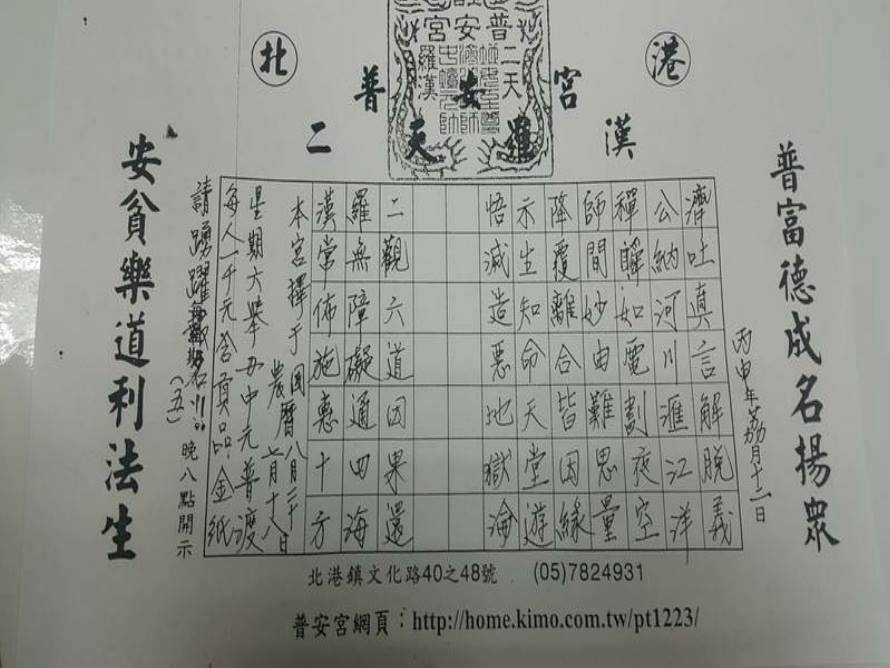 北 港
普安宮
二天羅漢
普富德成名揚眾
丙申年荔月十二日
濟吐真言解脫義
公納河川滙江洋
禪瞬如電劃夜空
師間妙由難思量
降覆離合皆因緣
示生知命天堂遊
悟減造惡地獄淪
二觀六道因果還
羅無障礙通四海
漢常佈施惠十方
本宮擇于國曆八月二十日
農曆七月十八
星期六舉办中元普渡
每人一千元含貢品金紙
請踴躍報名
(五)晚八點開示
安貧樂道利法生
北港鎮文化路40之48號 (05)7824931
普安宮網頁：http://home.kimo.com.tw/pt1223/